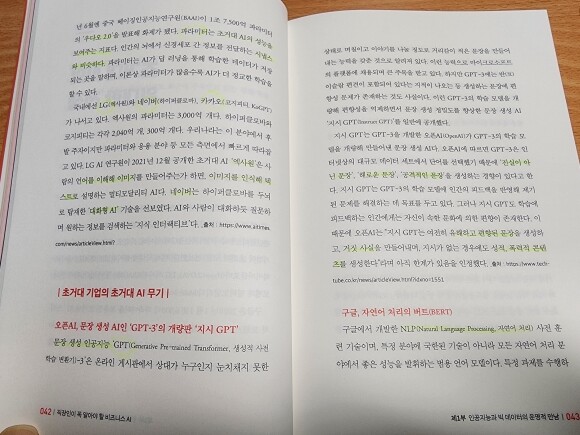 년 6월엔 중국 베이징인공지능연구원(BAAI)이 1조 7,500억 파라미터
의 '우다오 2.0'을 발표해 화제가 됐다. 파라미터는 초거대 AI의 성능을
보여주는 지표다. 인간의 뇌에서 신경세포 간 정보를 전달하는 시냅스
와 비슷하다. 파라미터는 AI가 딥 러닝을 통해 학습한 데이터가 저장
되는 곳을 말하며, 이론상 파라미터가 많을수록 AI가 더 정교한 학습을
할 수 있다.
국내에선 LG(엑사원)와 네이버(하이퍼클로바), 카카오(코지피티, KoGPT)
가 나서고 있다. 엑사원의 파라미터는 3,000억 개다. 하이퍼클로바와
코지피티는 각각 2,040억 개, 300억 개다. 우리나라는 이 분야에서 후
발 주자이지만 파라미터와 응용 분야 등 모든 측면에서 빠르게 따라잡
고 있다. LG AI 연구원이 2021년 12월 공개한 초거대 AI '엑사원'은 사
람의 언어를 이해해 이미지를 만들어주는가 하면, 이미지를 인식해 텍
스트로 설명하는 멀티모달리티 AI다. 네이버는 하이퍼클로바를 두뇌
로 탑재한 '대화형 AI' 기술을 선보였다. AI와 사람이 대화하듯 질문하
며 원하는 정보를 검색하는 '지식 인터랙티브'다. _출처 : https://www.aitimes.
com/news/articleView.html?
| 초거대 기업의 초거대 AI 무기 |
오픈AI, 문장 생성 AI인 'GPT-3'의 개량판 '지시 GPT'
문장 생성 인공지능 'GPT(Generative Pre-trained Transformer, 생성적 사전
학습 변환기)-3'은 온라인 게시판에서 상대가 누구인지 눈치채지 못한
042 | 직장인이 꼭 알아야 할 비즈니스 AI
상태로 며칠이고 이야기를 나눌 정도로 저리만큼 적은 문장을 만들어
내는 능력을 갖춘 것으로 알려져 있다. 이런 능력으로 마이크로소프트
의 플랫폼에 채용되며 큰 주목을 받고 있다. 하지만 GPT-3에는 반(反)
이슬람 편견이 포함되어 있다는 지적이 나오는 등 생성하는 문장에 편
향성 문제가 존재하는 것도 사실이다. 이런 GPT-3의 학습 모델을 개
량해 편향성을 억제하면서 문장 생성 정밀도를 향상한 문장 생성 AI
'지시 GPT(Instruct GPT)'를 일반에 공개했다.
지시 GPT는 GPT-3를 개발한 오픈AI(OpenAI)가 GPT-3의 학습 모
델을 개량해 만들어낸 문장 생성 AI다. 오픈AI에 따르면 GPT-3은 인
터넷상의 대규모 데이터 세트에서 단어를 선택했기 때문에 '진실이 아
닌 문장', '해로운 문장', '공격적인 문장'을 생성하는 경향이 있다고 한
다. 지시 GPT는 GPT-3의 학습 모델에 인간의 피드백을 반영해 제기
된 문제를 해결하는 데 목표를 두고 있다. 그러나 지시 GPT도 학습에
피드백하는 인간에게는 자신이 속한 문화에 의한 편향이 존재한다. 이
때문에 오픈AI는 "지시 GPT는 여전히 유해하고 편향된 문장을 생성하
고, 거짓 사실을 만들어내며, 지시가 없는 경우에도 성적, 폭력적 콘텐
츠를 생성한다"라며 아직 한계가 있음을 인정했다. _출처 : https://www.tech-
tube.co.kr/news/articleView.html?idxno=1551
구글, 자연어 처리의 버트(BERT)
구글에서 개발한 NLP(Natural Language Processing, 자연어 처리) 사전 훈
련 기술이며, 특정 분야에 국한된 기술이 아니라 모든 자연어 처리 분
야에서 좋은 성능을 발휘하는 범용 언어 모델이다. 특정 과제를 수행하
제1부 인공지능과 빅 데이터의 운명적 만남 | 043